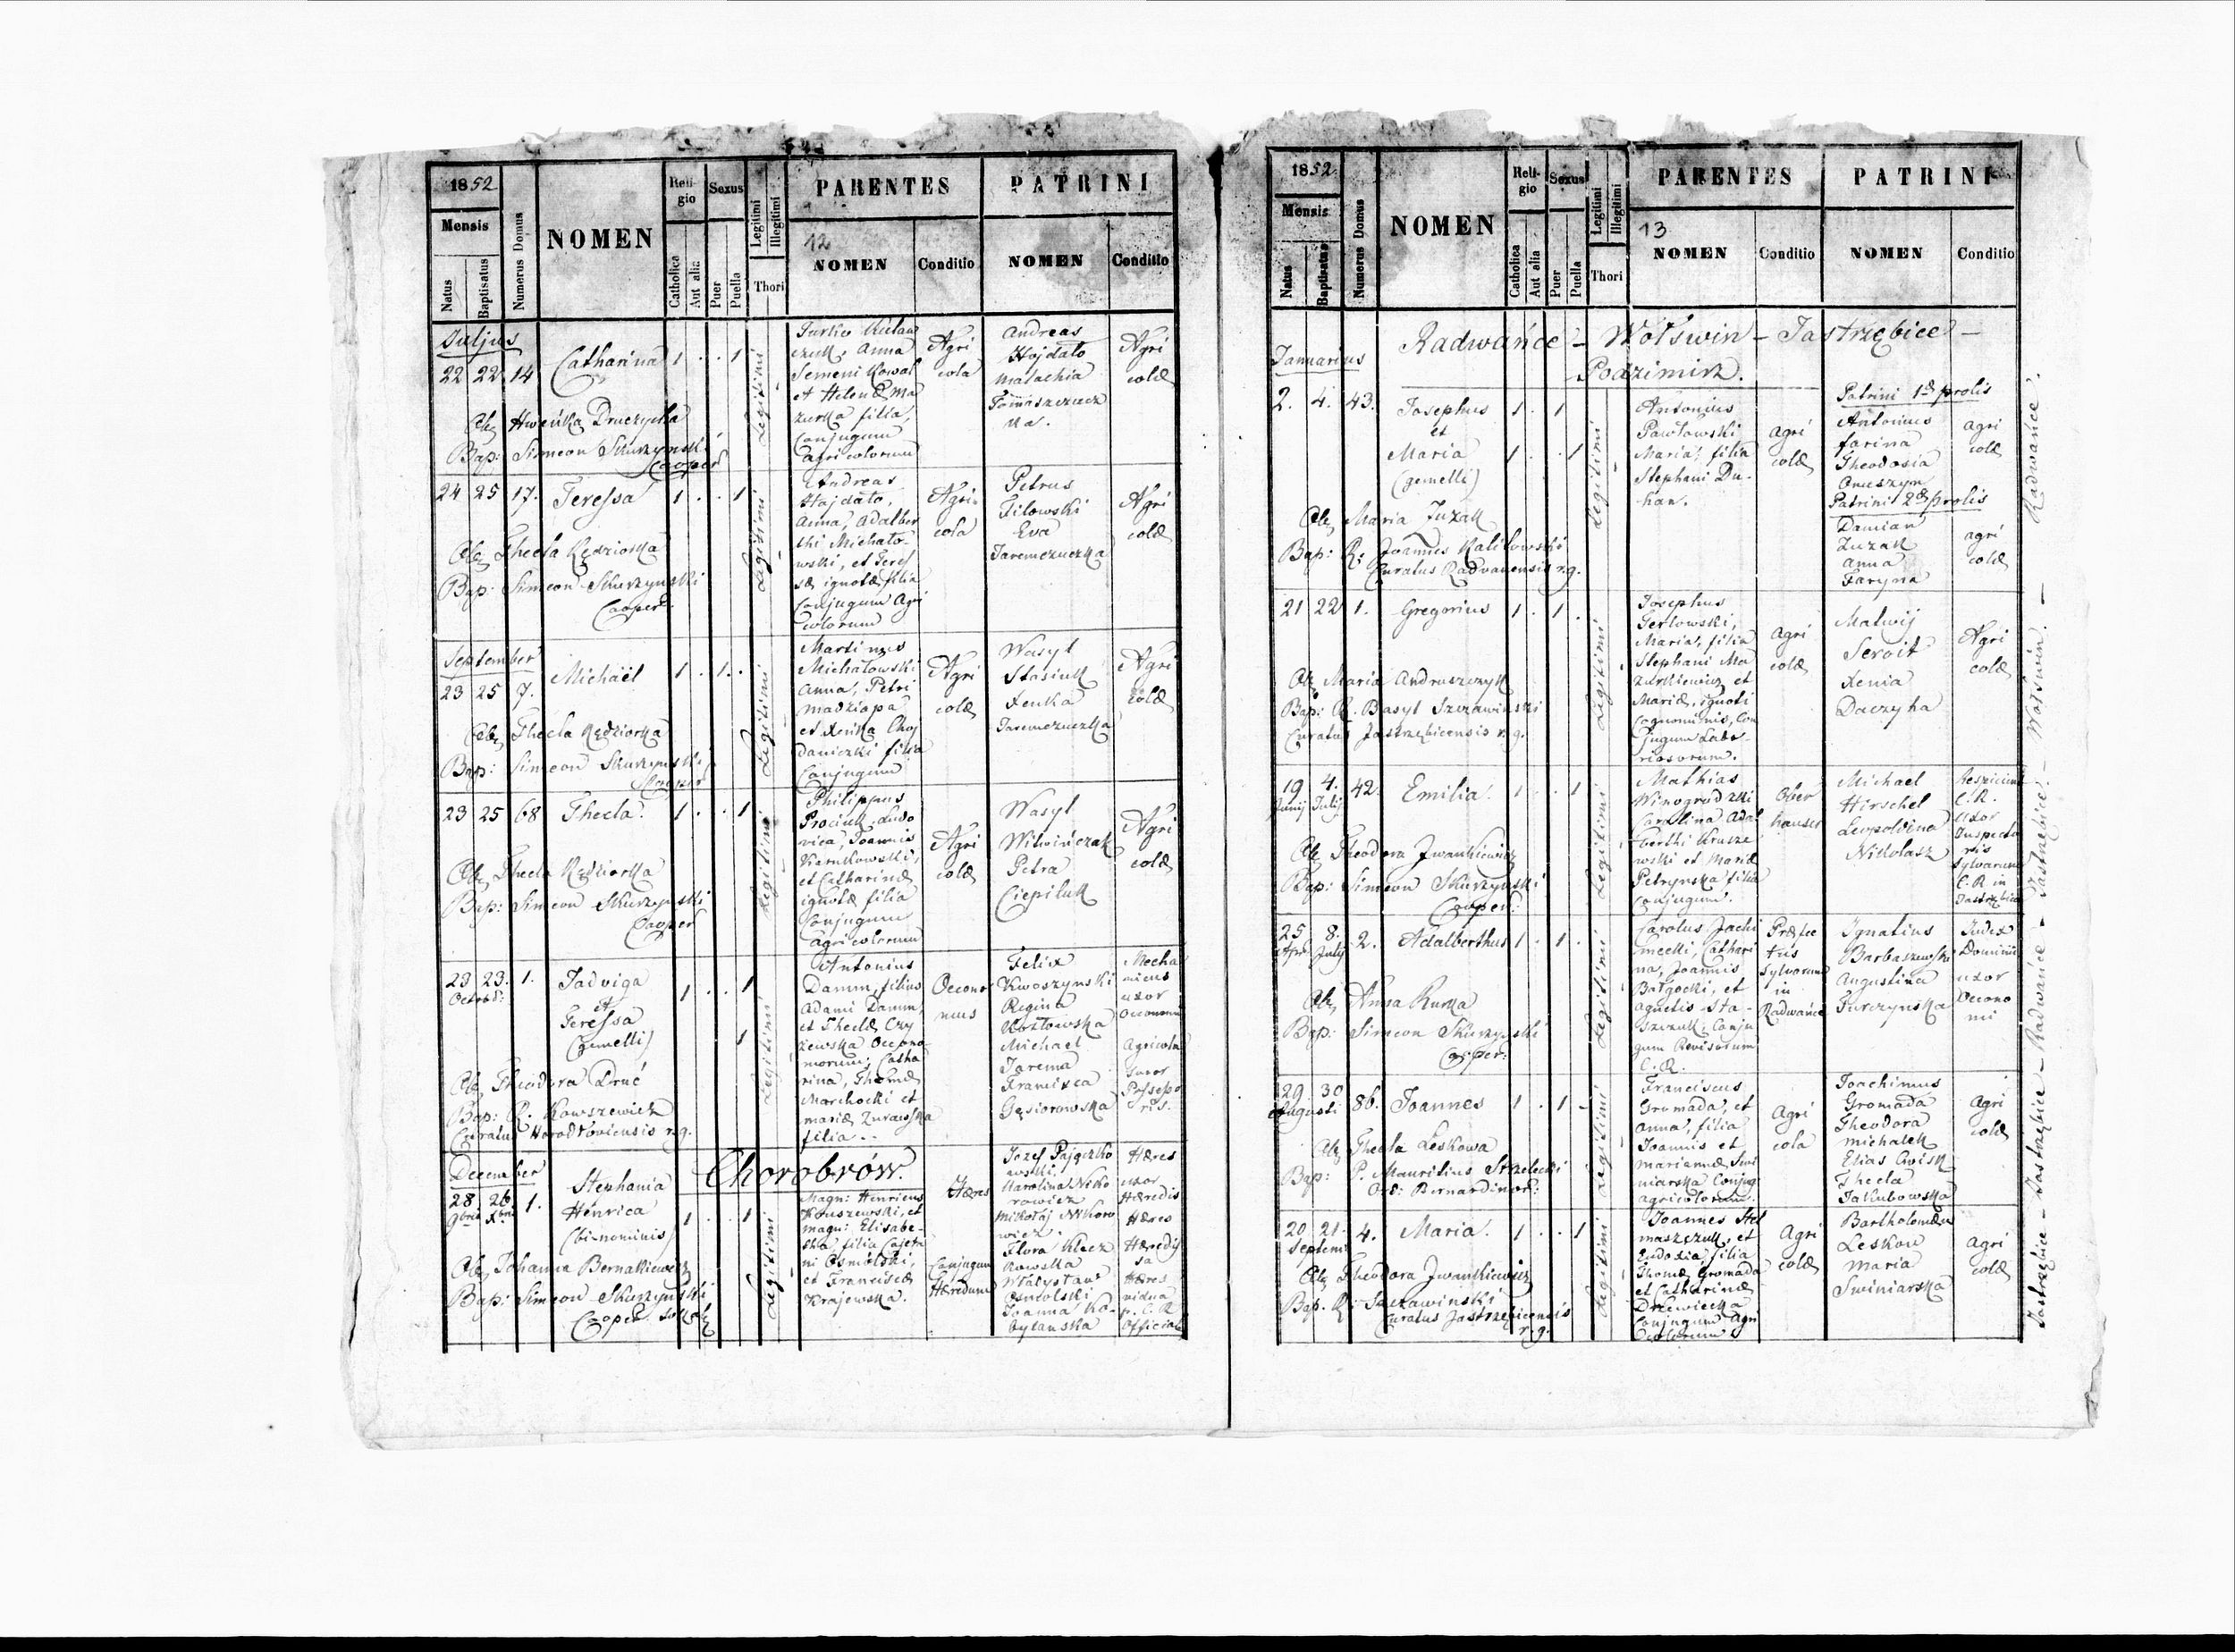 1852
Mensis
Natus
Baptisatus
Numerus Domus
NOMEN
Reli-
gio
Catholica
Aut alia
Sexus
Puer
Puella
Legitimi
Illegitimi
Thori
PARENTES
12
NOMEN
Conditio
PATRINI
NOMEN
Conditio
Julius
22 22 14 Catharina 1 . . 1
Obs. Hwenka Druczycka
Bap: Simeon Skurzynski
Cooper
Legitimi
czuk, Anna
Semeni Kowal
et Helenæ Ma
zurka filia
Conjugum
agricolorum
Agri
cola
Andreas
Hajdało
Malachia
Tomaszczucz
ka.
Agri
colæ
24 25 17. Teressa 1 . . 1
Obs. Thecla Kędziorka
Bap: Simeon Skurzynski
Cooper.
Legitimi
Andreas
Hajdało,
Anna, Adalber
thi Michało
wski, et Teres
sæ ignotæ filia
Conjugum Agri
colorum
Agri
cola
Petrus
Filowski
Eva
Jaremczuczka
Agri
colæ
September
23 25 7. Michaël 1 . 1 .
Obs. Thecla Kędziorka
Bap: Simeon Skurzynski
Cooper
Legitimi
Martinus
Michałowski
Anna, Petri
Madziapa
et Xenka Choj
daniczki filia
Conjugum
Agri
colæ
Wasyl
Stasiuk
Xenka
Jaremczuczka
Agri
colæ
23 25 68 Thecla 1 . . 1
Obs. Thecla Kędziorka
Bap: Simeon Skurzynski
Cooper
Legitimi
Philippus
Prociuk, Ludo
vica, Joannis
Kiernkowski,
et Catharinæ
ignotæ filia
Conjugum
agricolorum
Agri
colæ
Wasyl
Witwińczak
Petra
Ciepiluk
Agri
colæ
23 23. 1. Jadviga 1 . . 1
Octobr:
et
Teressa 1
(gemelli)
Obs. Theodora Druć
Bap: R. Kowszewicz
Curatus Horodłoviensis r.g.
Legitimi
Antonius
Damm, filius
Adami Damm,
et Theclæ Czy
żewska Oecono
morum; Catha
rina, Thomæ
Marchocki et
mariæ Zurawska
filia..
Oecono
mus
Felix
Kwoszynski
Regina
Kozłowska
Michael
Jarema
Francisca
Gąsiorowska
Mecha
nicus
uxor
Oeconomi
Agricola
Uxor
Possesso
ris.
Chorobrów.
December
28 26 1. Stephania
9bris Xbris
Henrica 1 . . 1
(bi-nominis)
Obs. Johanna Bernakiewicz
Bap: Simeon Skurzynski
Cooper. Sokal
Legitimi
Magn: Henricus
Kruszewski, et
magn: Elisabe-
tha filia Cajeta
ni Osmólski,
et Franciscæ
Krajewska.
Hæres
Conjugum
Hæredum
Jozef Pajączko
wski
Karolina Niko
rowicz
Mikołaj Nikoro
wicz.
Flora Klecz
kowska
Władysław
Osmolski
Joanna Ko-
bylanska
Hæres
uxor
Hæredis
Hæres
Hæredis
sa
Hæres
vidua
p. C.R.
Officialis
1852
Mensis
Natus
Baptisatus
Numerus Domus
NOMEN
Reli-
gio
Catholica
Aut alia
Sexus
Puer
Puella
Legitimi
Illegitimi
Thori
PARENTES
13
NOMEN
Conditio
PATRINI
NOMEN
Conditio
Radwańce - Wołswin - Jastrzębice -
Podzimirz.
Januarius
2. 4. 43. Josephus 1 . 1
et
Maria 1 . . 1
(gemelli)
Obs. Maria Juzak
Bap: R: Joannes Kalitowski
Curatus Radvanensis r.g.
Legitimi
Antonius
Pawłowski
Maria, filia
Stephani Du-
han.
agri
colæ
Patrini 1æ prolis
Antonius
farina
Theodosia
Oneszym
Patrini 2æ prolis
Damian
Zuzak
anna
Faryna
agri
colæ
agri
colæ
21 22 1. Gregorius 1 . 1 .
Obs. Maria Andruszczyk
Bap: R. Basyl Szczawinski
Curatus Jastrzębicensis r.g.
Legitimi
Josephus
Gerlowski,
Maria, filia
Stephani Ma
zurkiewicz et
Mariæ, ignoti
Cognominis, Con
jugum Labo-
riosorum.
Agri
colæ
Matwij
Seroit
Xenia
Daczyha
Agri
colæ
19 4. 42. Emilia. 1 . . 1
Junij Julij
Obs. Theodora Iwankiewicz
Bap: Simeon Skurzynski
Cooper:
Legitimi
Mathias
Winogrodzki
Carolina Adal
berthi Krusze
wski et Mariæ
Petrynska filia
Conjugum.
Ober
hauser
Michael
Hirschel
Leopoldina
Nikolasz
C.R.
uxor
Inspecto
ris
Sylvarum
C.R in
Jastrzębice
25 8. 2. Adalberthus 1 . 1 .
Apr. July
Obs. Anna Rurka
Bap: Simeon Skurzynski
Cooper:
Legitimi
Carolus Jachi
mecki, Cathari
na, Joannis
Bałgocki, et
agnetis Sta-
szczuk, Conju
gum Revisorum
C.R.
Præfec
tus
Sylvarum
in
Radwańce
Ignatius
Barbaszewski
Augustina
Turczynska
Judex
Dominii
uxor
Oecono
mi
29. 30 86. Joannes 1 . 1 -
Augusti
Obs. Thecla Leskowa
Bap: P. Mauritius Strzelecki
Ord: Bernardinor:
Legitimi
Franciscus
Gromada, et
anna, filia
Joannis et
mariannæ Swi
niarska Conjug
agricolorum.
Agri
cola
Joachimus
Gromada
Theodora
michalek
Elias Cwisk
Thecla
Jakubowska
Agri
colæ
20 21. 4. Maria. 1 . . 1
Septemb
Obs. Theodora Iwankiewicz
Bap. R: Szczawinski
Curatus Jastrzębicensis
r.g.
Legitimi
Joannes Hel
maszczuk, et
Eudoxia, filia
Thomæ Gromada
et Catharinæ
Drzewiecka
Conjugum Agri
colorum.
Agri
colæ
Bartholomæus
Leskow
Maria
Swiniarska
agri
colæ
Jastrzębice - Jastrzębice - Radwańce - Jastrzębice. - Wołswin. - Radwańce.